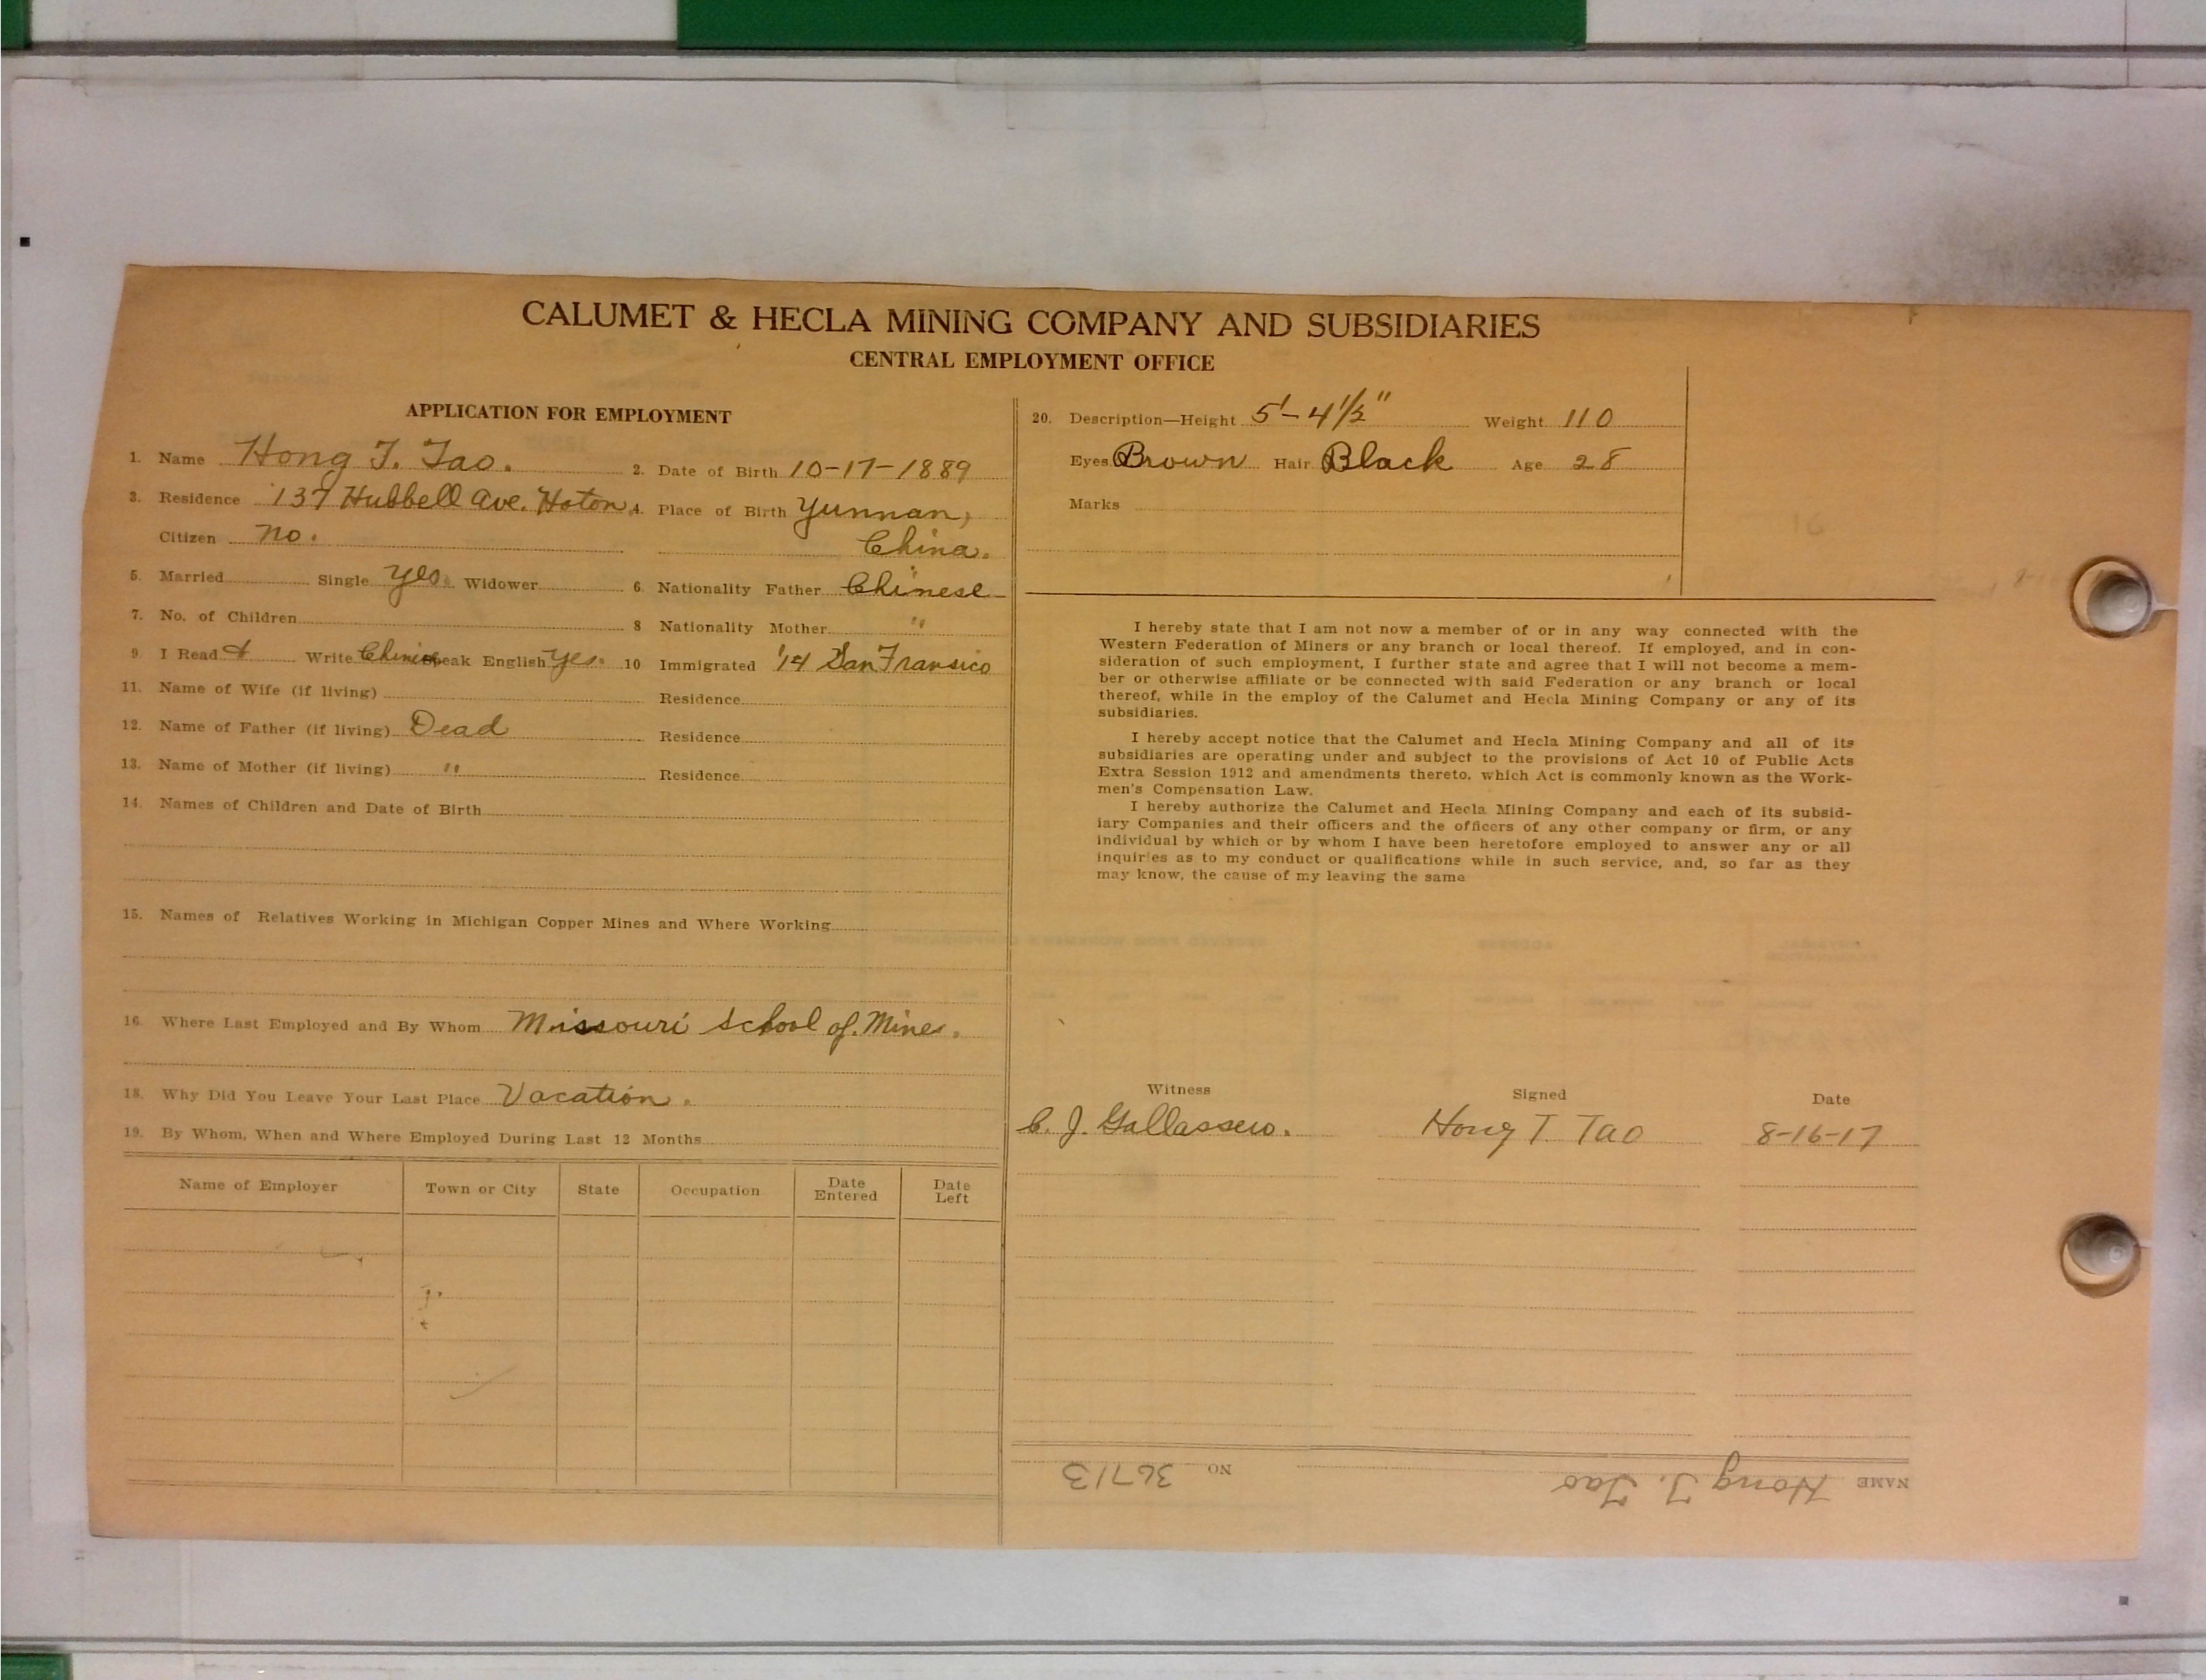 CALUMET & HECLA MINING COMPANY AND SUBSIDIARIES
CENTRAL EMPLOYMENT OFFICE
APPLICATION FOR EMPLOYMENT
1. Name Hong T. Tao. 2. Date of Birth 10-17-1889
3. Residence 137 Hubbell Ave. Hoton 4. Place of Birth Yunnan,
Citizen no. China.
5. Married Single Yes. Widower 6. Nationality Father Chinese
7. No. of Children 8 Nationality Mother "
9. I Read & Write Chinese Speak English Yes. 10 Immigrated '14 San Fransico
11. Name of Wife (if living) Residence
12. Name of Father (if living) Dead Residence
13. Name of Mother (if living) " Residence
14. Names of Children and Date of Birth
15. Names of Relatives Working in Michigan Copper Mines and Where Working
16. Where Last Employed and By Whom Missouri School of. Mines.
18. Why Did You Leave Your Last Place Vacation.
19. By Whom, When and Where Employed During Last 12 Months
Name of Employer Town or City State Occupation Date Entered Date Left
20. Description—Height 5'-4½" Weight 110
Eyes Brown Hair Black Age 28
Marks
I hereby state that I am not now a member of or in any way connected with the
Western Federation of Miners or any branch or local thereof. If employed, and in con-
sideration of such employment, I further state and agree that I will not become a mem-
ber or otherwise affiliate or be connected with said Federation or any branch or local
thereof, while in the employ of the Calumet and Hecla Mining Company or any of its
subsidiaries.
I hereby accept notice that the Calumet and Hecla Mining Company and all of its
subsidiaries are operating under and subject to the provisions of Act 10 of Public Acts
Extra Session 1912 and amendments thereto, which Act is commonly known as the Work-
men's Compensation Law.
I hereby authorize the Calumet and Hecla Mining Company and each of its subsid-
iary Companies and their officers and the officers of any other company or firm, or any
individual by which or by whom I have been heretofore employed to answer any or all
inquiries as to my conduct or qualifications while in such service, and, so far as they
may know, the cause of my leaving the same
Witness Signed Date
C. J. Hong T Tao 8-16-17
NAME Hong T. Tao NO 36713